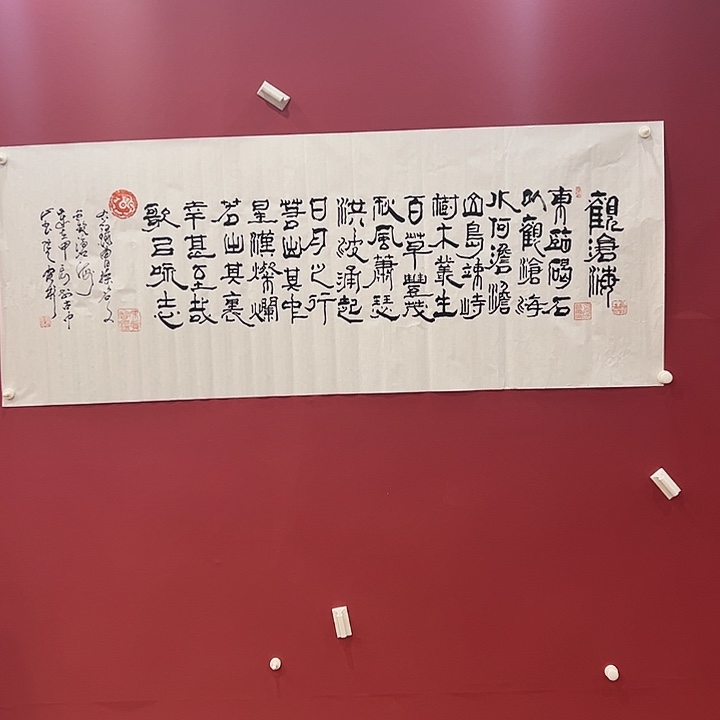 觀滄海
東臨碣石
以觀滄海
水何澹澹
山島竦峙
樹木叢生
百草豐茂
秋風蕭瑟
洪波涌起
日月之行
若出其中
星漢燦爛
若出其裏
幸甚至哉
歌以詠志